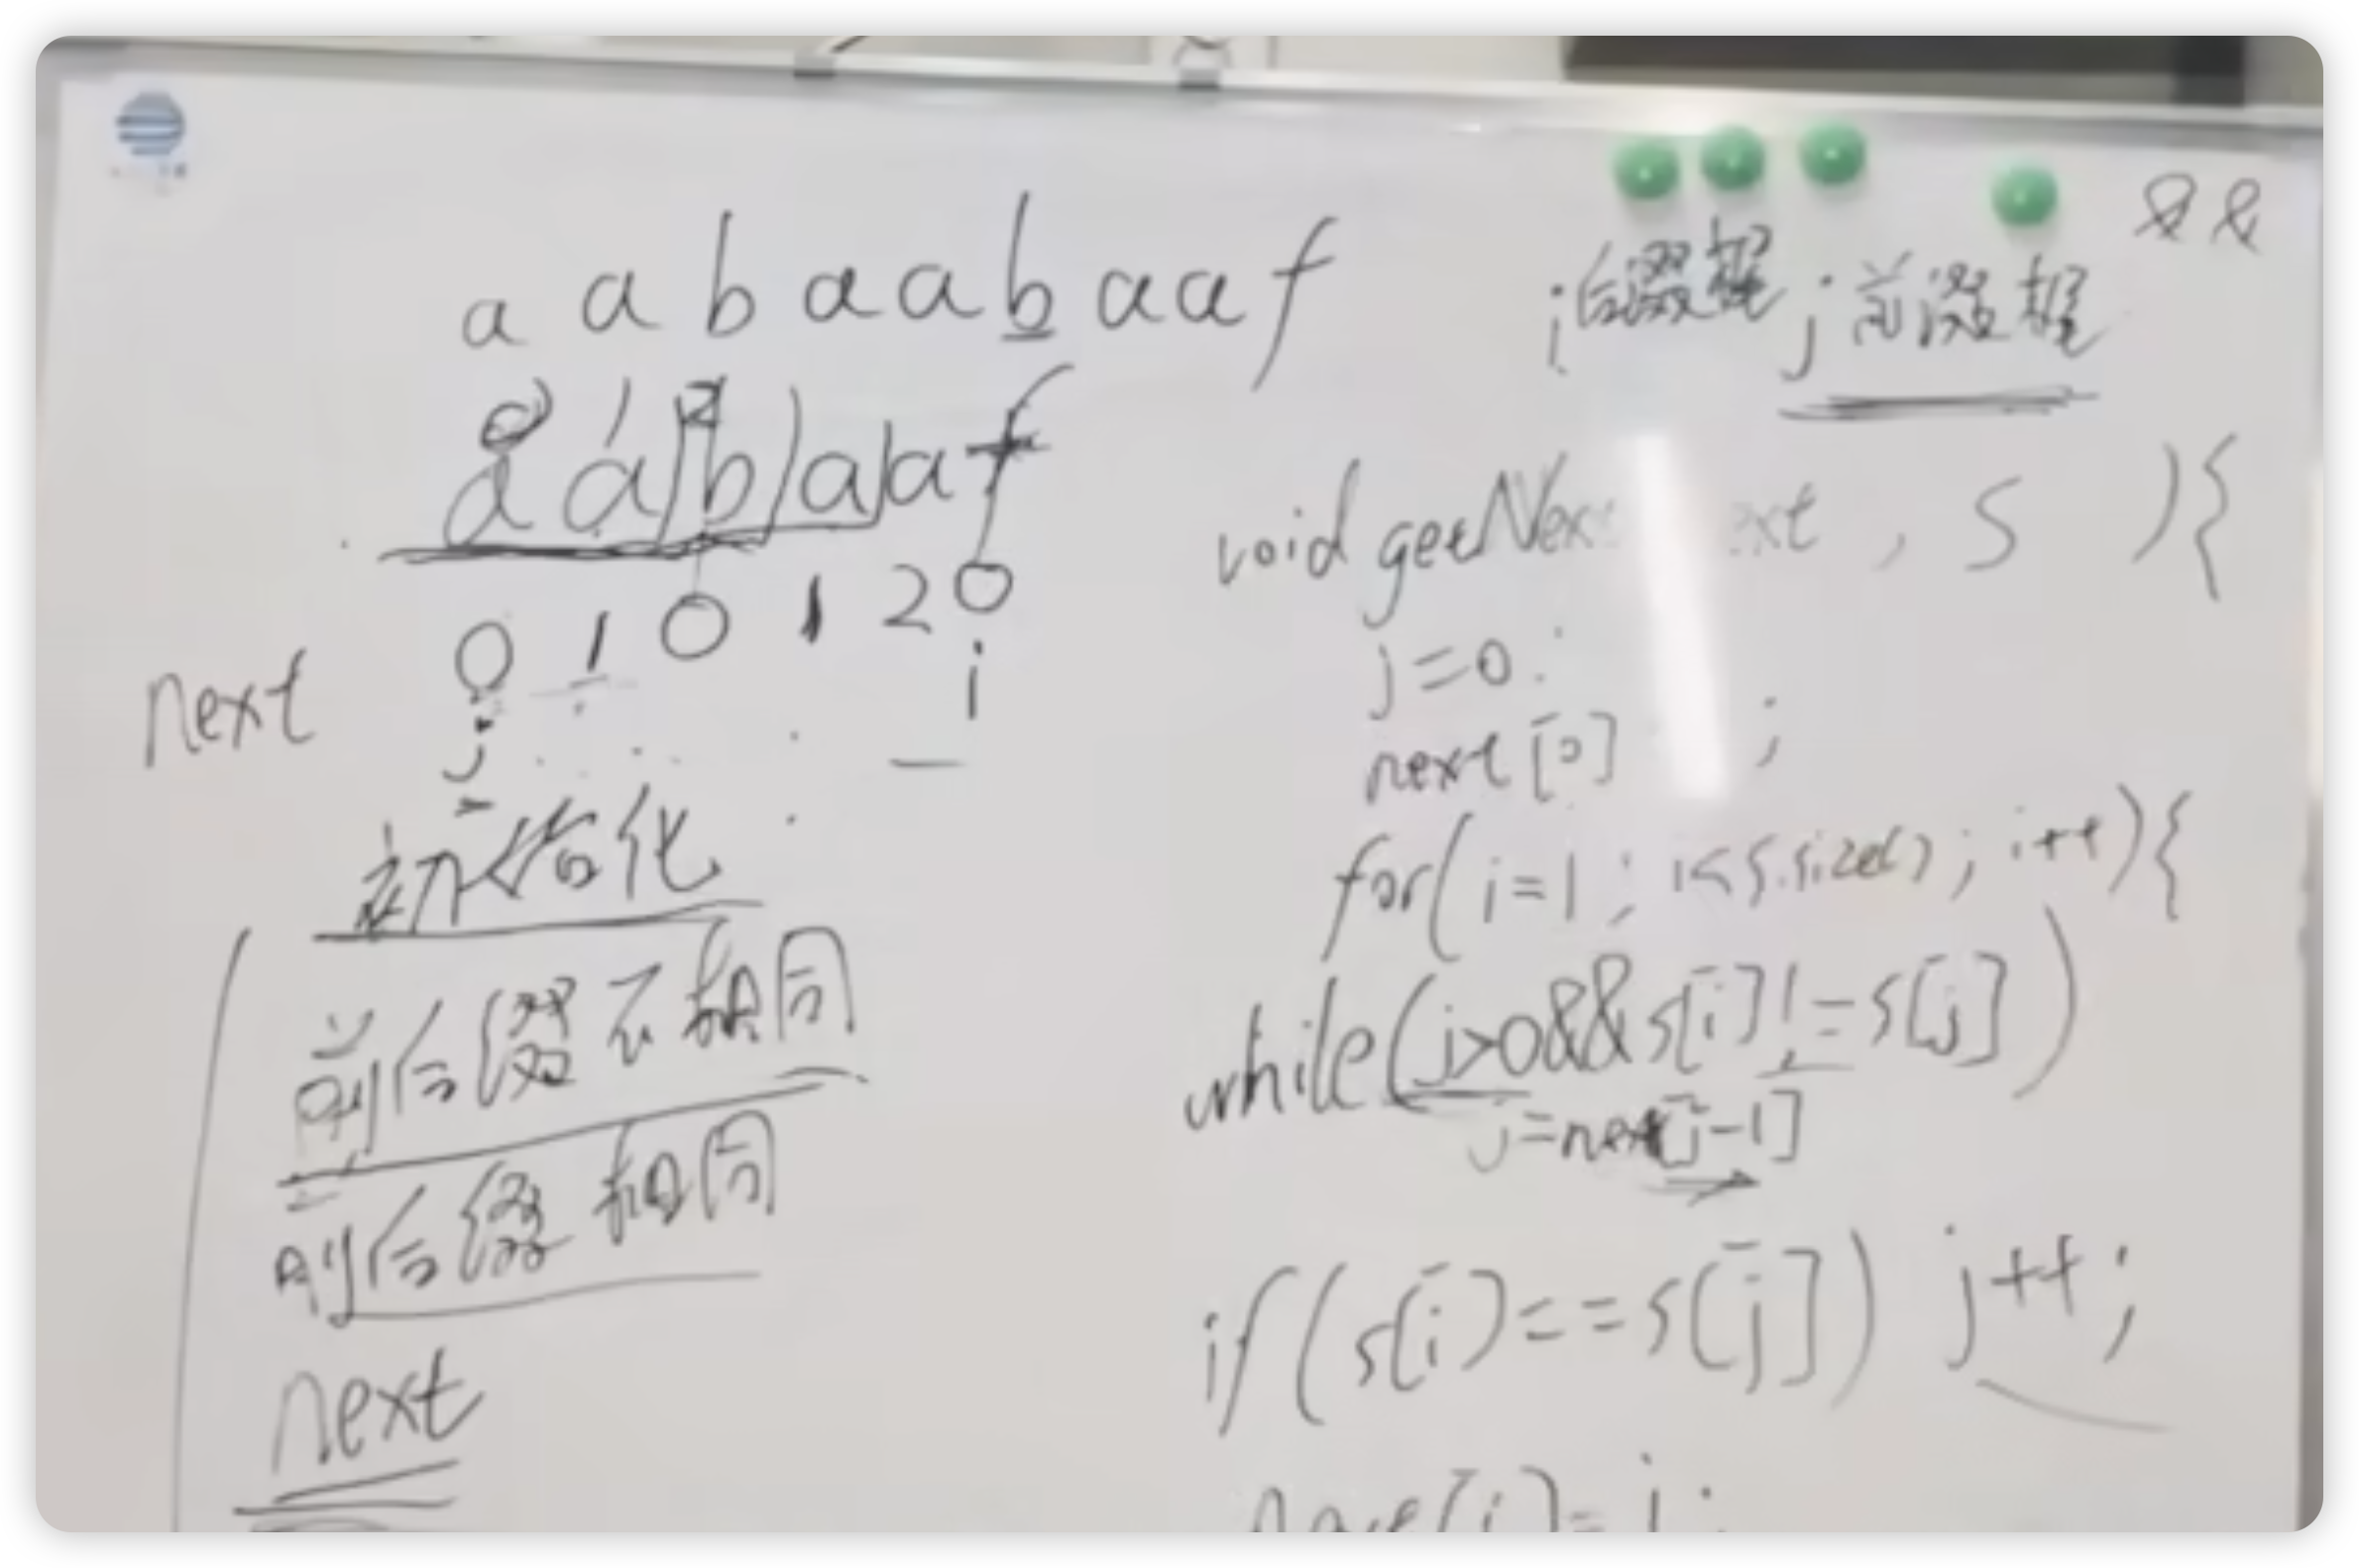 a a b a a b a a f
0 1 2
a a b a a f
next 0 1 0 1 2 0
j i
初始化
前后缀不相同
前后缀相同
next
&&
i后缀尾 j前缀尾
void getNext , s ){
j=0
next[0] ;
for(i=1; i<s.size(); i++){
while(j>0&&s[i]!=s[j])
j=next[j-1]
if(s[i]==s[j]) j++;
next[i]=j;